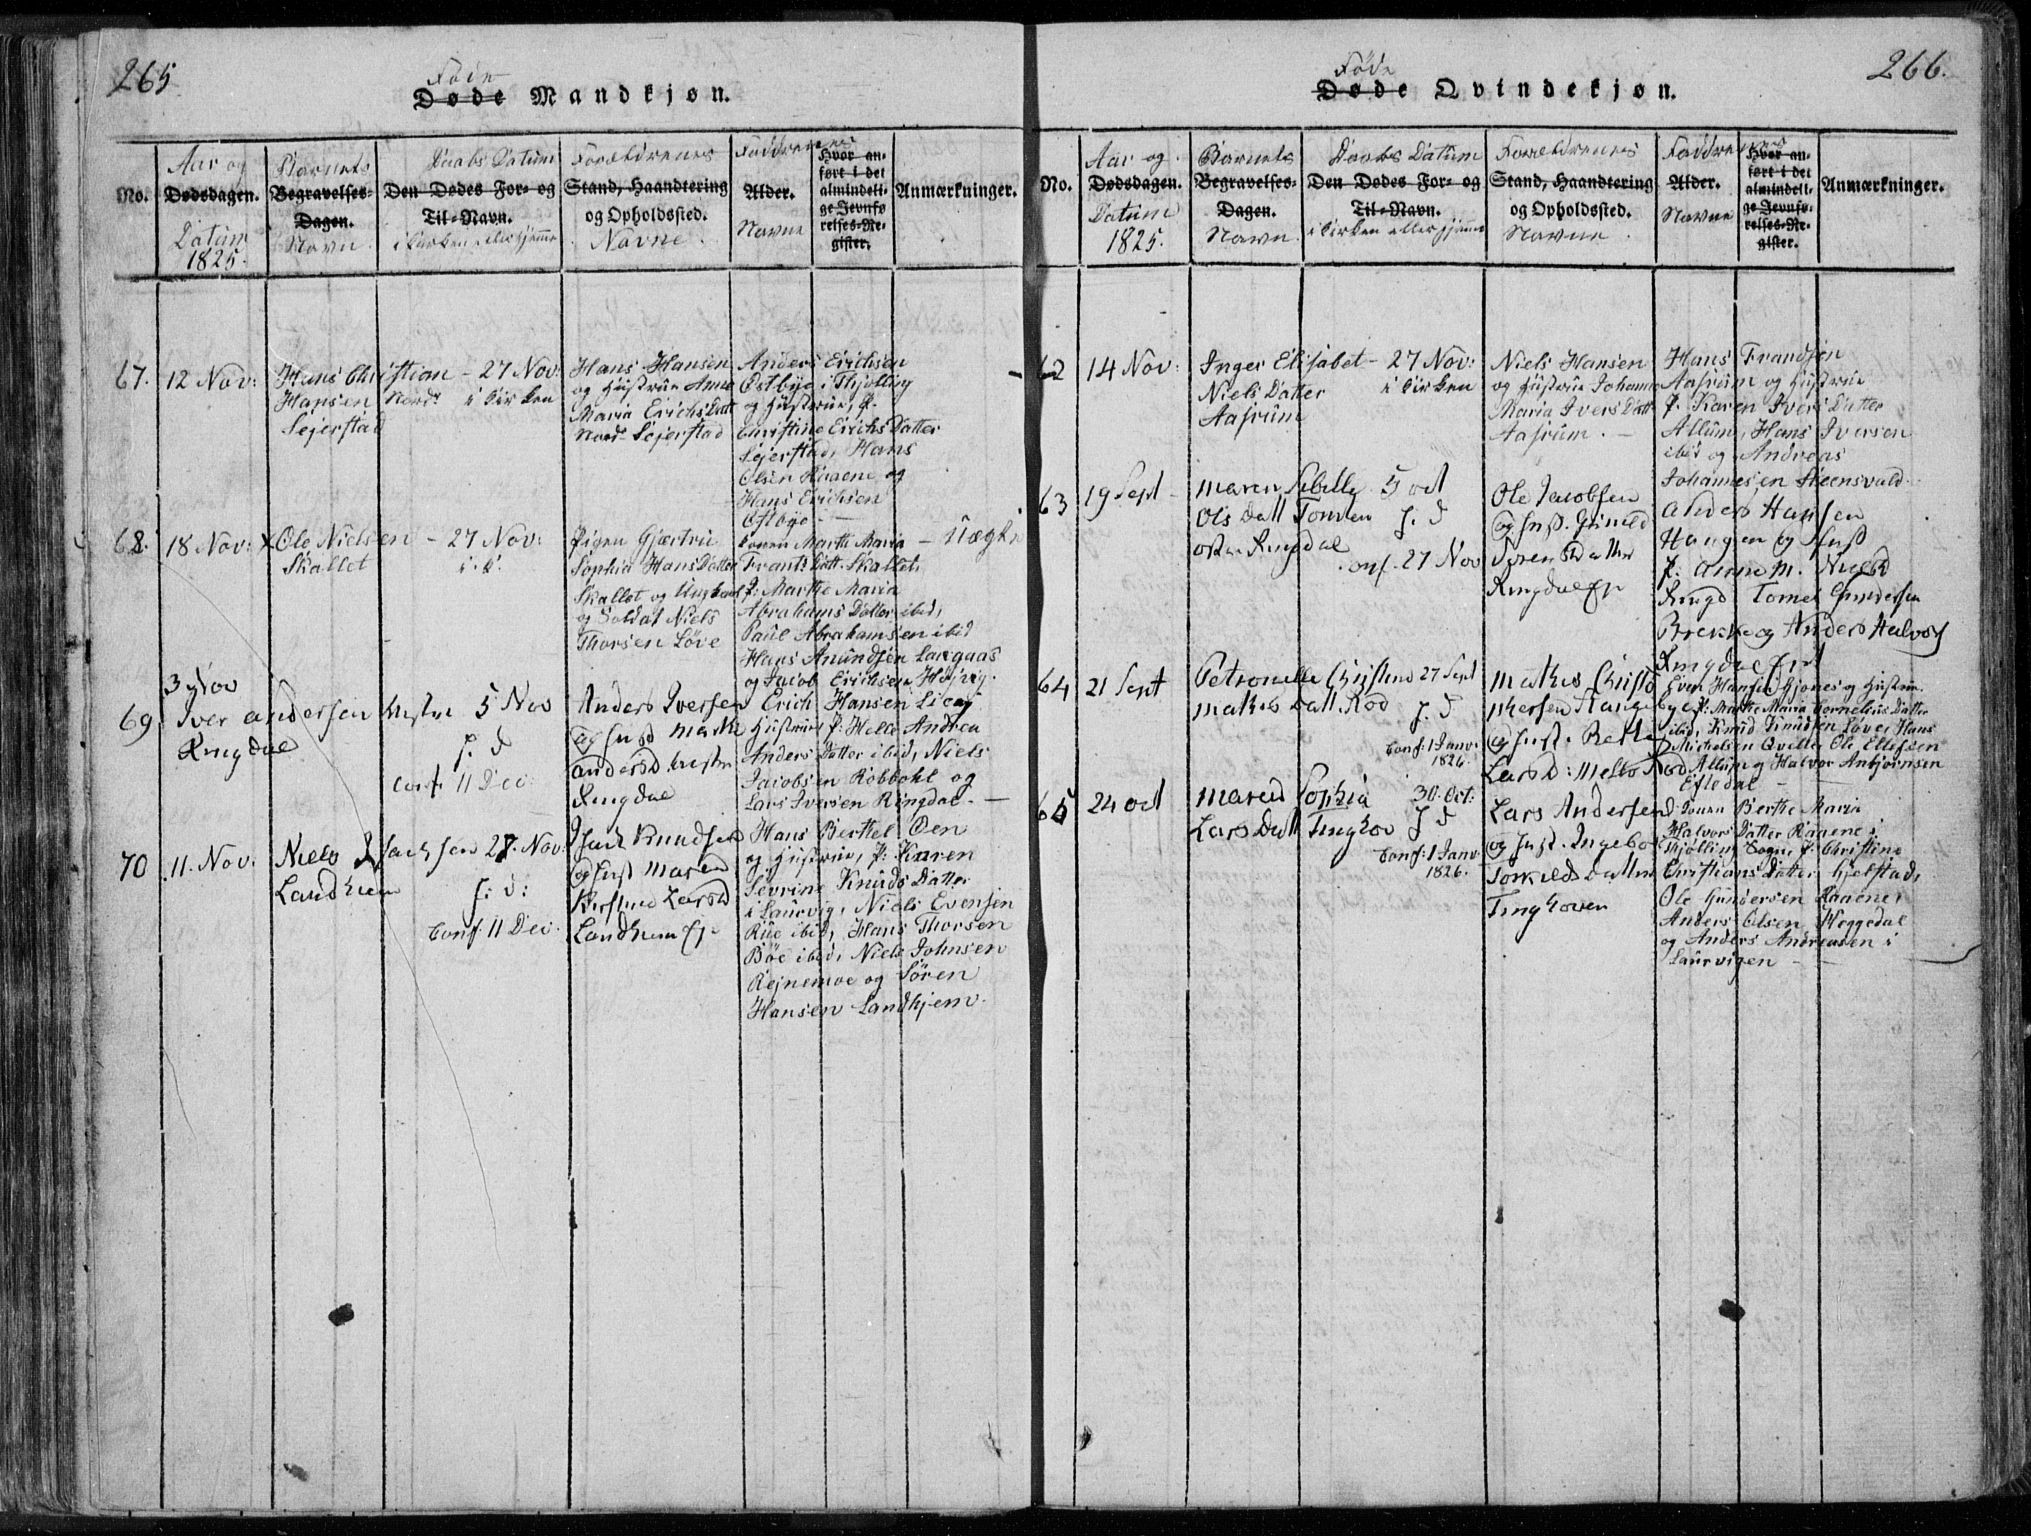 265
Føde
Døde Mandkjøn.
No.
Aar og
Dødsdagen.
Datum
1825.
Barnets
Begravelses-
Dagen.
Navn
Daabs Datum
Den Dødes For- og
Til-Navn.
i Kirken eller hjemme
Forældrenes
Stand, Haandtering
og Opholdssted.
Navne.
Faddrenes
Alder.
Navne
Hvor an-
ført i det
almindeli-
ge Jevnfø-
relses-Re-
gister.
Anmærkninger.
67. 12 Nov:
Hans Christian - 27 Nov:
Hansen Nord- i Kirken
Sejerstad
Hans Hansen
og Hustrue Anne
Maria Erichs Datt
Nord- Sejerstad
Anders Erichsen
Østbye i Thjølling
og Hustrue, P.
Christine Erichs Datter
Sejerstad, Hans
Olsen Haaene og
Hans Erichsen
Østbye.
68. 18 Nov:
Ole Nielsen - 27 Nov:
Skallet i. K.
Pigen Gjærtru
Sophia Hans Datter
Skallet og Ungkarl
og Soldat Niels
Thorsen Löve
Konen Marthe Maria
Frants Datt. Skallet,
P. Marthe Maria
Abrahams Datter ibid,
Paul Abrahamsen ibid
Hans Anundsen Langaas
og Jacob Erichsen Højvig.
Uægte
69
3 Nov
Iver Andersen 5 Nov
Ringdal
J. D
Conf 11 Dec:
Anders Iversen
og Hust Marthe
Andersd
Ringdal
Erich Hansen
Hustrue P. Helle Andrea
Anders Datter ibid, Niels
Jacobsen Robbohl og
Lars Iversen Ringdal.
70 11. Nov:
Niels Isachsen 27 Nov:
Landhiem
J: d:
Conf 11 Dec.
Isach Knudsen
og Hust Maren
Kirstine Larsd
Landhiem
Hans Berthel Oen
og Hustrue, P. Karen
Sevrine Knuds Datter
i Laurvig, Niels Evensen
Rue ibid, Hans Thorsen
Böe ibid, Niels Johnsen
Rejnemoe og Sören
Hansen Landhjem.
266.
Føde
Døde Qvindekjøn.
No.
Aar og
Dødsdagen.
Datum
1825.
Barnets
Begravelses-
Dagen.
Navn
Daabs Datum
Den Dødes For- og
Til-Navn.
i Kirken eller hjemme
Forældrenes
Stand, Haandtering
og Opholdssted.
Navne.
Faddrenes
Alder.
Navne
Hvor an-
ført i det
almindeli-
ge Jevnfø-
relses-Re-
gister.
Anmærkninger.
62 14 Nov:
Inger Elisabet - 27 Nov:
Niels Datter i Kirken
Aasrum
Niels Hansen
og Hustrue Johanne
Maria Ivers Datt
Aasrum.
Hans Frandsen
Aasrum og Hustrue
P. Karen Ivers Datter
Allum, Hans Iversen
ibid og Andreas
Johannesen Steensvald.
63 19 Sept
Maren Sibille 5 oct
Ols Datt Tomten J. D
Ringdal
Conf. 27 Nov
Ole Jacobsen
og Hust. Gunild
Sørens Datter
Ringdal
Anders Hansen
Haugen og Hust
P. Anne M. Nield
Ringd Tomes Gundersen
Brekke og Anders Halvors
Ringdal
64 21 Sept
Petronelle Christine 27 Sept
Mathis Datt Röd
J. D
Conf. 1 Janv.
1826.
Mathis Christo
phersen
og Hust. Berthe
Larsd: Melbo Röd
Even Hansen Gjønes og Hustrue
P. Marthe Maria Cornelius Datter
ibid, Knud Knudsen Löve, Hans
Michelsen Qvelle Ole Ellefsen
Allum og Halvor Anbjørnsen
Efledal
65 24 oct
Maren Sophia 30. Oct:
Lars Datt Tinghov J D
Conf. 1 Janv.
1826.
Lars Andersen
og Hust. Ingebor
Torkilds Datter
Tinghoven
P. Jouen Berthe Maria
Halvors Datter Raaene i
Thjølling Sogn, P. Christine
Christians Datter Hjelstad,
Ole Gundersen Raaene,
Anders Olsen Heggedal
og Anders Andreasen i
Laurvigen